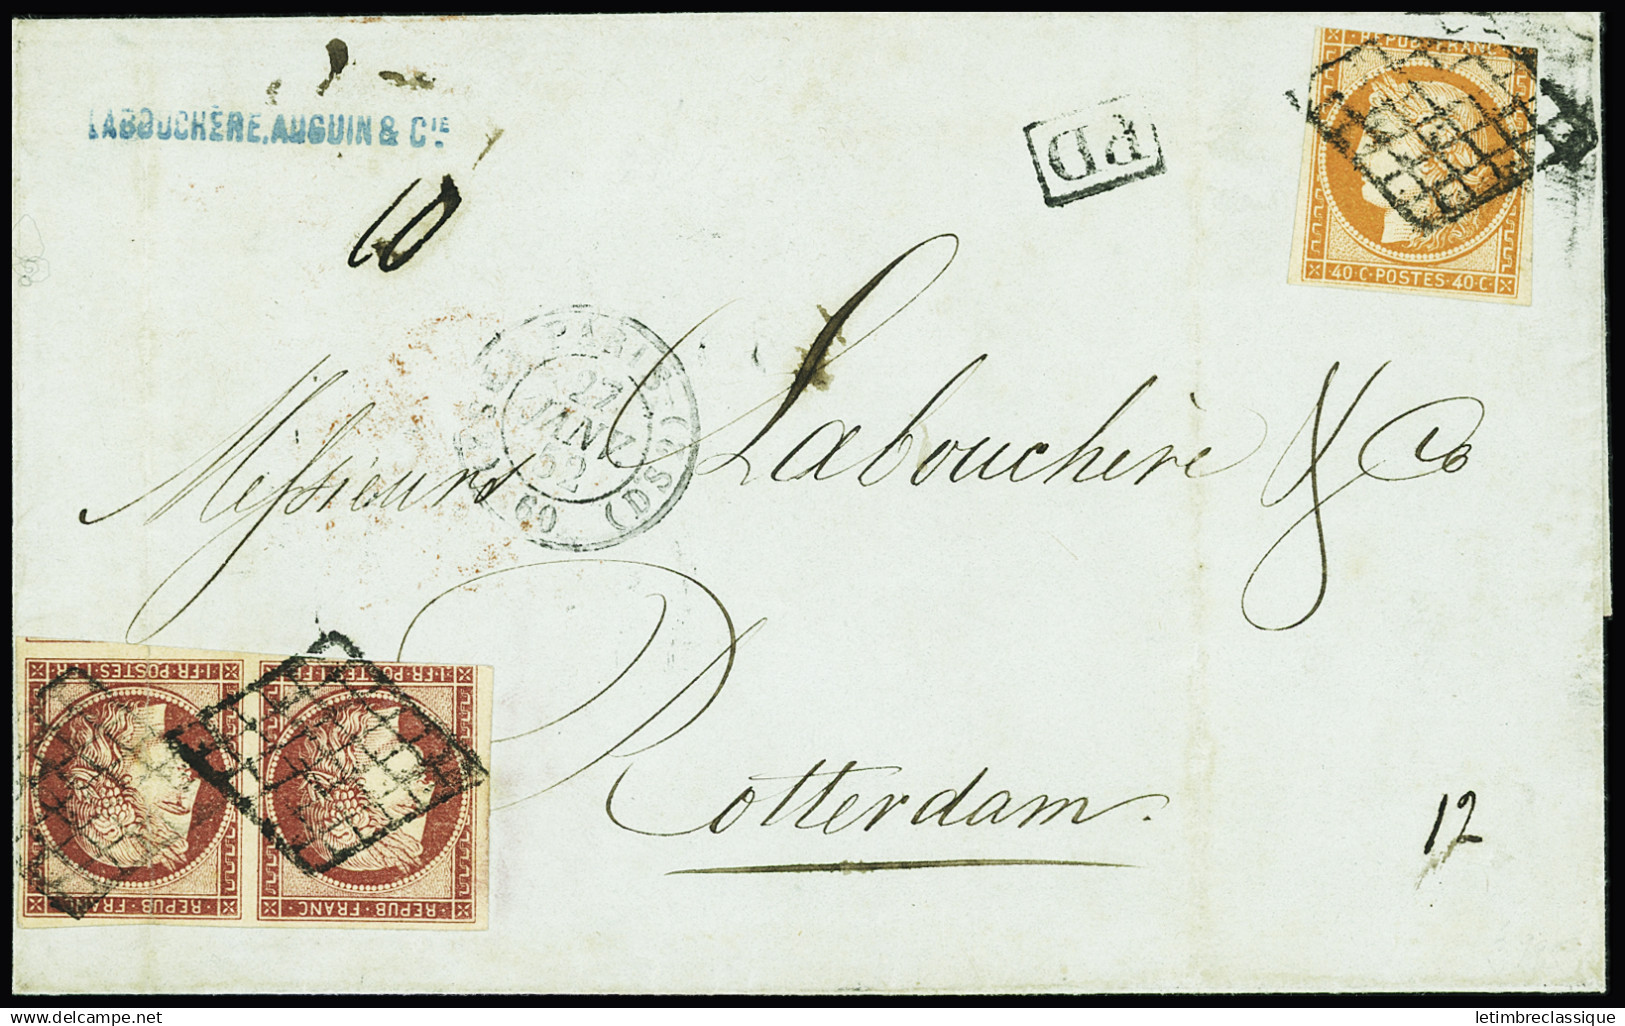 LABOUCHÈRE, AUGUIN & CIE
PD
REPUB·FRANC
40·C·POSTES·40·C·
10
PARIS
27
JANV
52
60
(DS)
Messieurs Labouchère & Co
Rotterdam.
12
1·FR·POSTES·1·FR
1·FR·POSTES·1·FR
REPUB·FRANC
REPUB·FRANC
delcampe.net
letimbreclassique